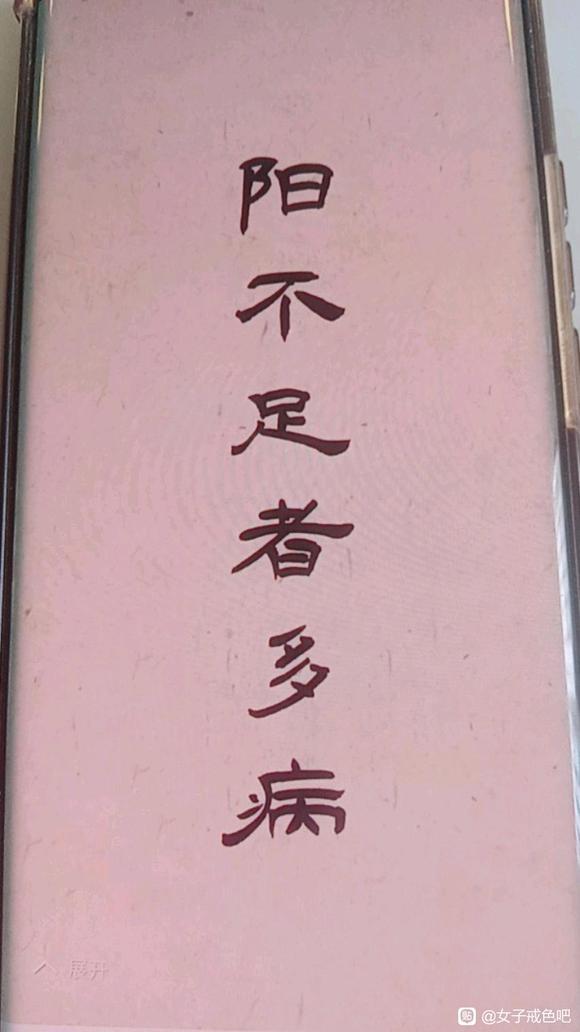 阳不足者多病
展开
贴 @女子戒色吧